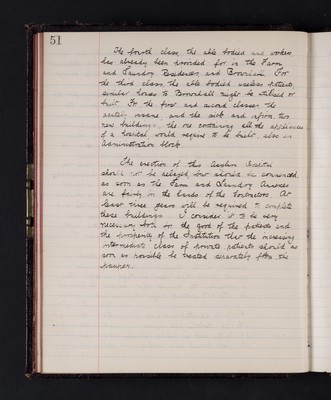 51
The fourth class, the able bodied and workers
has already been provided for in the Farm
and Laundry Residences and Brownhill. For
the third class, the able bodied useless patients
similar houses to Brownhill might be utilised or
built. For the first and second classes the
acutely insane, and the sick and infirm, two
new buildings, the one containing all the appliances
of a hospital, would require to be built, also an
administration block.
The erection of this Asylum
should not be delayed, but should be commenced
as soon as the Farm and Laundry Annexes
are fairly in the hands of the Contractors. At
least three years will be required to complete
these buildings. I consider it to be very
necessary both for the good of the patients and
the prosperity of the Institution that the increasing
intermediate class of private patients should as
soon as possible be treated separately from the
pauper.